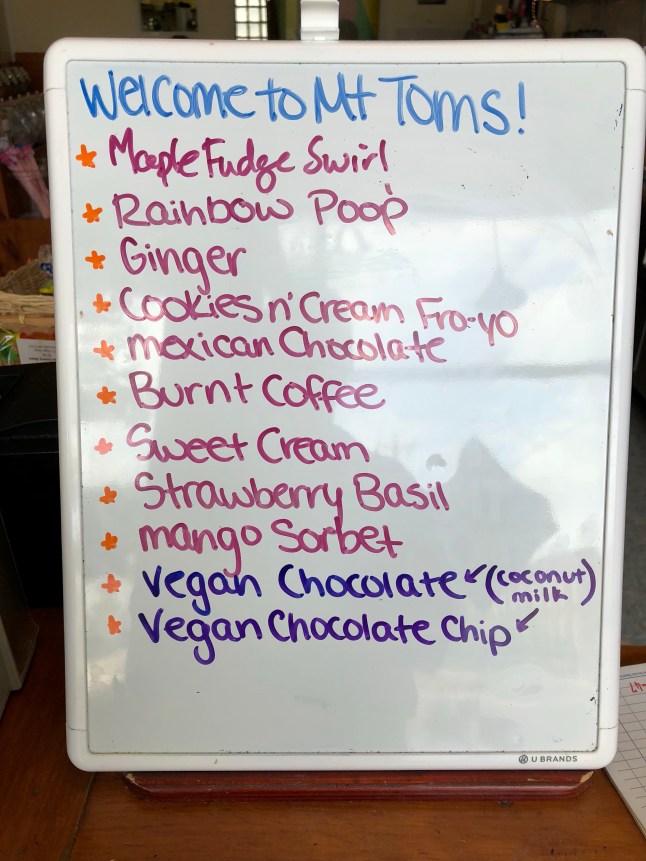 Welcome to Mt Toms!
* Maple Fudge Swirl
* Rainbow Poop
* Ginger
* Cookies n' Cream Fro-yo
* mexican Chocolate
* Burnt Coffee
* Sweet Cream
* Strawberry Basil
* mango Sorbet
* Vegan Chocolate ↙ (coconut milk)
* Vegan Chocolate Chip ↙
U BRANDS